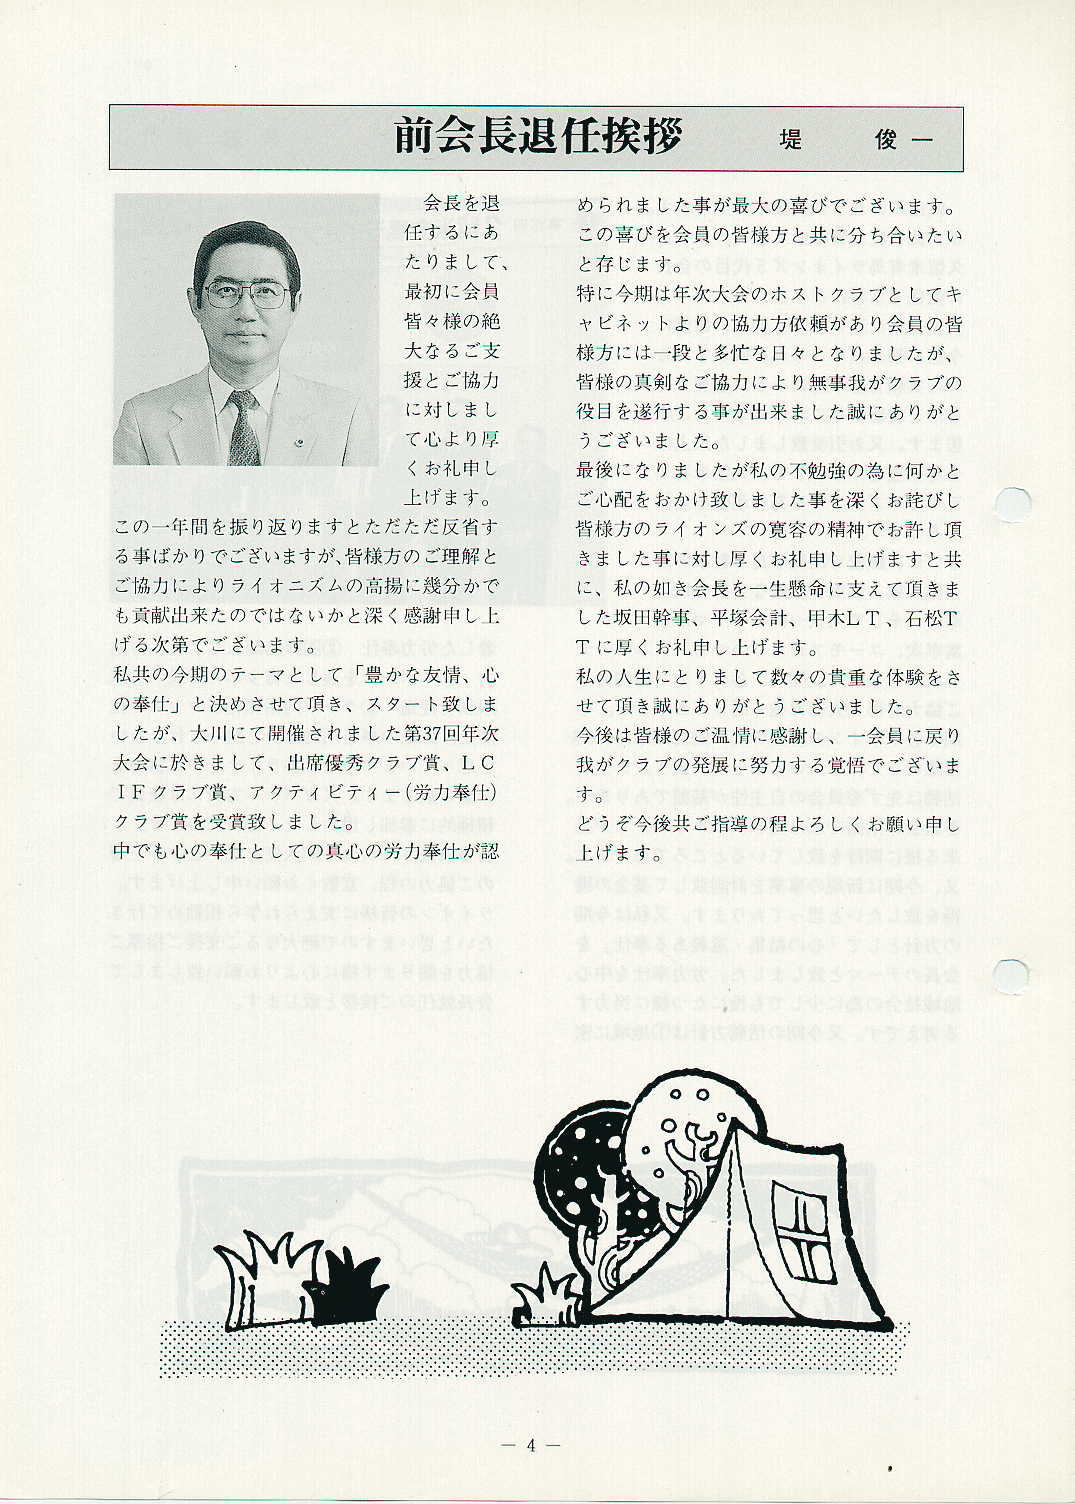 前会長退任挨拶　堤　俊一
会長を退
任するにあ
たりまして、
最初に会員
皆々様の絶
大なるご支
援とご協力
に対しまし
て心より厚
くお礼申し
上げます。
この一年間を振り返りますとただただ反省す
る事ばかりでございますが、皆様方のご理解と
ご協力によりライオニズムの高揚に幾分かで
も貢献出来たのではないかと深く感謝申し上
げる次第でございます。
私共の今期のテーマとして「豊かな友情、心
の奉仕」と決めさせて頂き、スタート致しま
したが、大川にて開催されました第37回年次
大会に於きまして、出席優秀クラブ賞、ＬＣ
ＩＦクラブ賞、アクティビティー(労力奉仕)
クラブ賞を受賞致しました。
中でも心の奉仕としての真心の労力奉仕が認
められました事が最大の喜びでございます。
この喜びを会員の皆様方と共に分ち合いたい
と存じます。
特に今期は年次大会のホストクラブとしてキ
ャビネットよりの協力方依頼があり会員の皆
様方には一段と多忙な日々となりましたが、
皆様の真剣なご協力により無事我がクラブの
役目を遂行する事が出来ました誠にありがと
うございました。
最後になりましたが私の不勉強の為に何かと
ご心配をおかけ致しました事を深くお詫びし
皆様方のライオンズの寛容の精神でお許し頂
きました事に対し厚くお礼申し上げますと共
に、私の如き会長を一生懸命に支えて頂きま
した坂田幹事、平塚会計、甲木ＬＴ、石松Ｔ
Ｔに厚くお礼申し上げます。
私の人生にとりまして数々の貴重な体験をさ
せて頂き誠にありがとうございました。
今後は皆様のご温情に感謝し、一会員に戻り
我がクラブの発展に努力する覚悟でございま
す。
どうぞ今後共ご指導の程よろしくお願い申し
上げます。
— 4 —